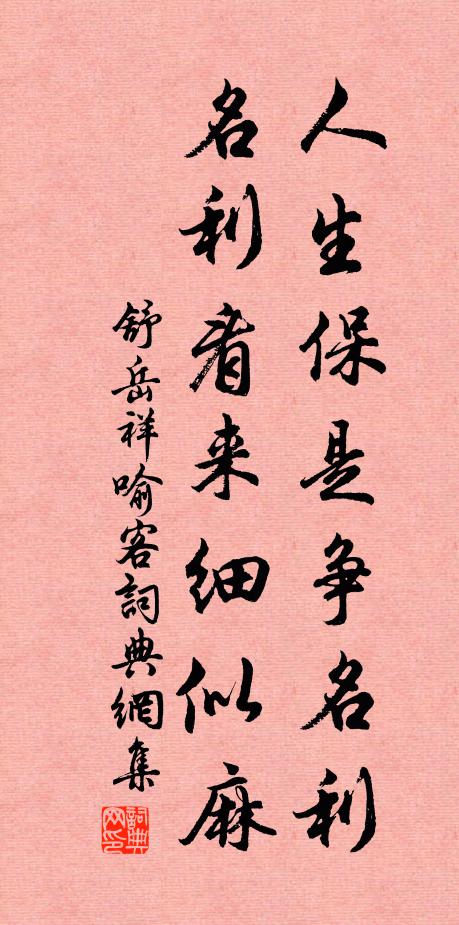 人生保是争名利
名利看来细似麻
舒岳祥喻客詞典網集
詞典网印